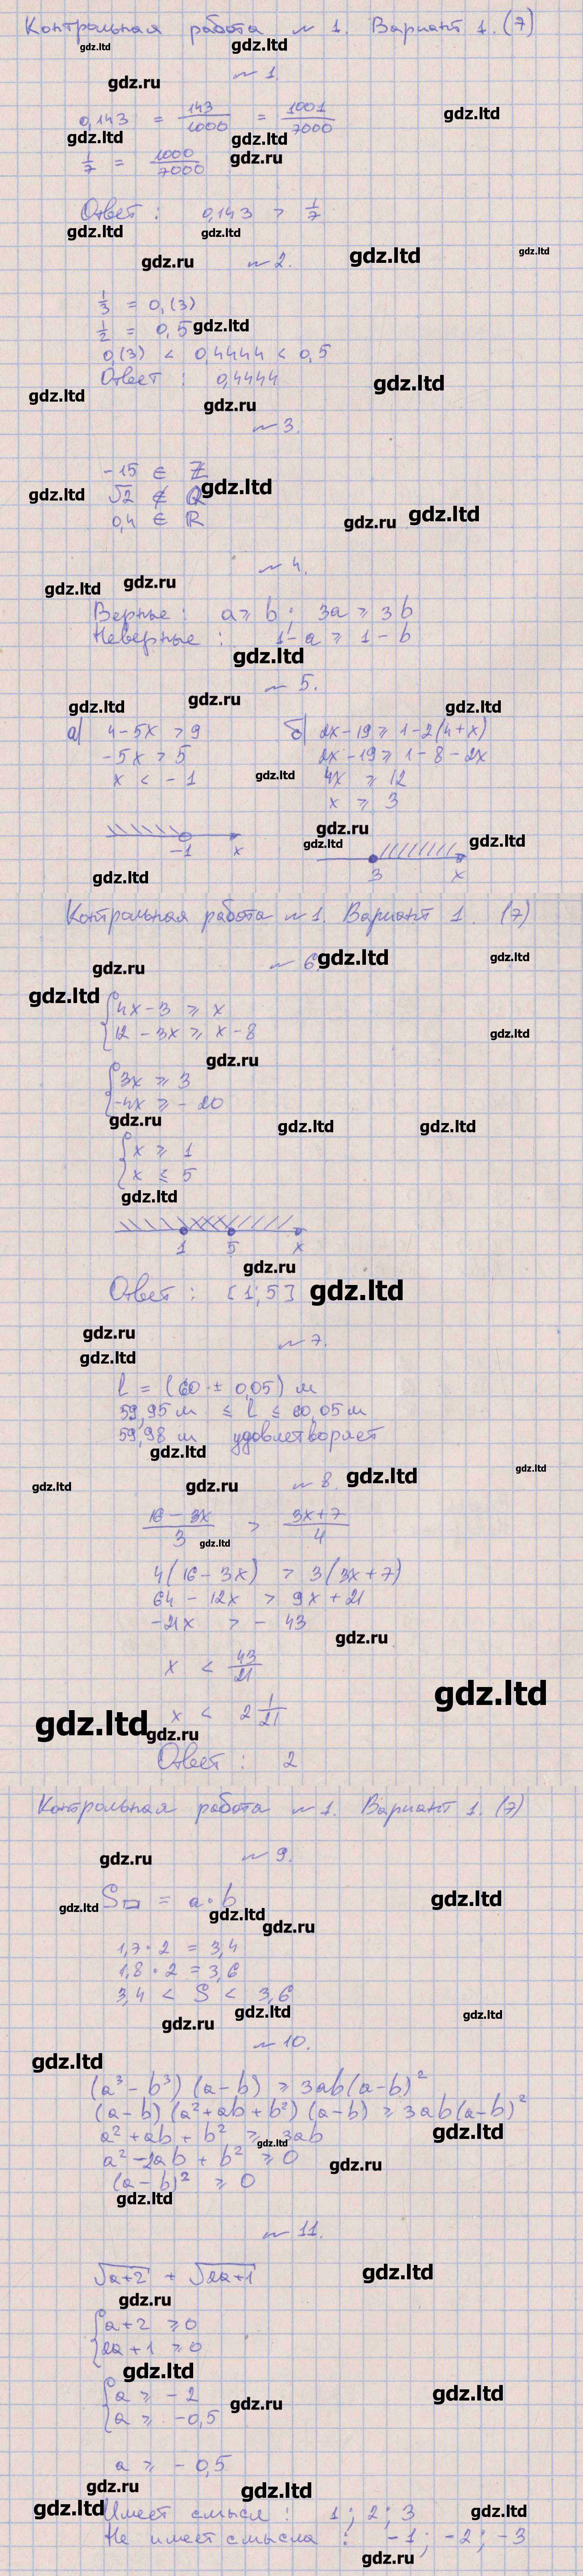 Контрольная работа № 1. Вариант 1. (7)
gdz.ltd gdz.ltd
№ 1.
gdz.ru
0,143 = 143/1000 = 1001/7000
gdz.ltd
gdz.ltd gdz.ltd
1/7 = 1000/7000
gdz.ru
Ответ : 0,143 > 1/7
gdz.ltd gdz.ltd
gdz.ru № 2. gdz.ltd gdz.ltd
1/3 = 0,(3)
1/2 = 0,5 gdz.ltd
0,(3) < 0,4444 < 0,5
Ответ : 0,4444
gdz.ltd
gdz.ltd gdz.ru
№ 3.
-15 ∈ Z
√2 ∉ Q
gdz.ltd gdz.ltd
0,4 ∈ R
gdz.ru gdz.ltd
№ 4.
gdz.ltd gdz.ru
Верные : a ≥ b ; 3a ≥ 3b
Неверные : 1 - a ≥ 1 - b
gdz.ltd
№ 5.
gdz.ltd gdz.ru gdz.ltd
а) 4 - 5x > 9 б) 2x - 19 ≥ 1 - 2(4+x)
-5x > 5 2x - 19 ≥ 1 - 8 - 2x
x < -1 gdz.ltd 4x ≥ 12
x ≥ 3
gdz.ru
gdz.ltd gdz.ltd
-1 x
3 x
gdz.ltd
Контрольная работа № 1. Вариант 1. (7)
№ 6. gdz.ltd gdz.ltd
gdz.ru
gdz.ltd
4x - 3 ≥ x
12 - 3x ≥ x - 8 gdz.ltd
gdz.ru
3x ≥ 3
-4x ≥ -20
gdz.ru gdz.ltd gdz.ltd
x ≥ 1
x ≤ 5
gdz.ltd
1 5 x
gdz.ru
Ответ : [1; 5] gdz.ltd
gdz.ru № 7.
gdz.ltd
l = (60 ± 0,05) м
59,95 м ≤ l ≤ 60,05 м
59,98 м удовлетворяет
gdz.ltd
gdz.ltd gdz.ru № 8. gdz.ltd gdz.ltd
16 - 3x/3 > 3x+7/4
gdz.ltd
4(16 - 3x) > 3(3x + 7)
64 - 12x > 9x + 21
-21x > -43
gdz.ru
x < 43/21
gdz.ltd
x < 2 1/21
gdz.ltd gdz.ru
Ответ : 2
Контрольная работа № 1. Вариант 1. (7)
gdz.ru № 9.
S▭ = a · b
gdz.ltd gdz.ltd gdz.ltd
gdz.ru
1,7 · 2 = 3,4
1,8 · 2 = 3,6
3,4 < S < 3,6
gdz.ru gdz.ltd gdz.ltd
№ 10.
gdz.ltd
(a³ - b³)(a - b) ≥ 3ab(a - b)²
(a - b)(a² + ab + b²)(a - b) ≥ 3ab(a - b)²
a² + ab + b² ≥ 3ab
gdz.ltd gdz.ltd
a² - 2ab + b² ≥ 0
gdz.ru
(a - b)² ≥ 0
gdz.ltd
№ 11.
√a+2 + √2a+1 gdz.ltd
gdz.ru
a + 2 ≥ 0
2a + 1 ≥ 0
gdz.ltd
a ≥ -2
a ≥ -0,5
gdz.ru gdz.ltd
a ≥ -0,5
gdz.ru gdz.ltd
gdz.ltd gdz.ltd
Имеет смысл : 1 ; 2 ; 3
Не имеет смысла : -1 ; -2 ; -3
gdz.ru